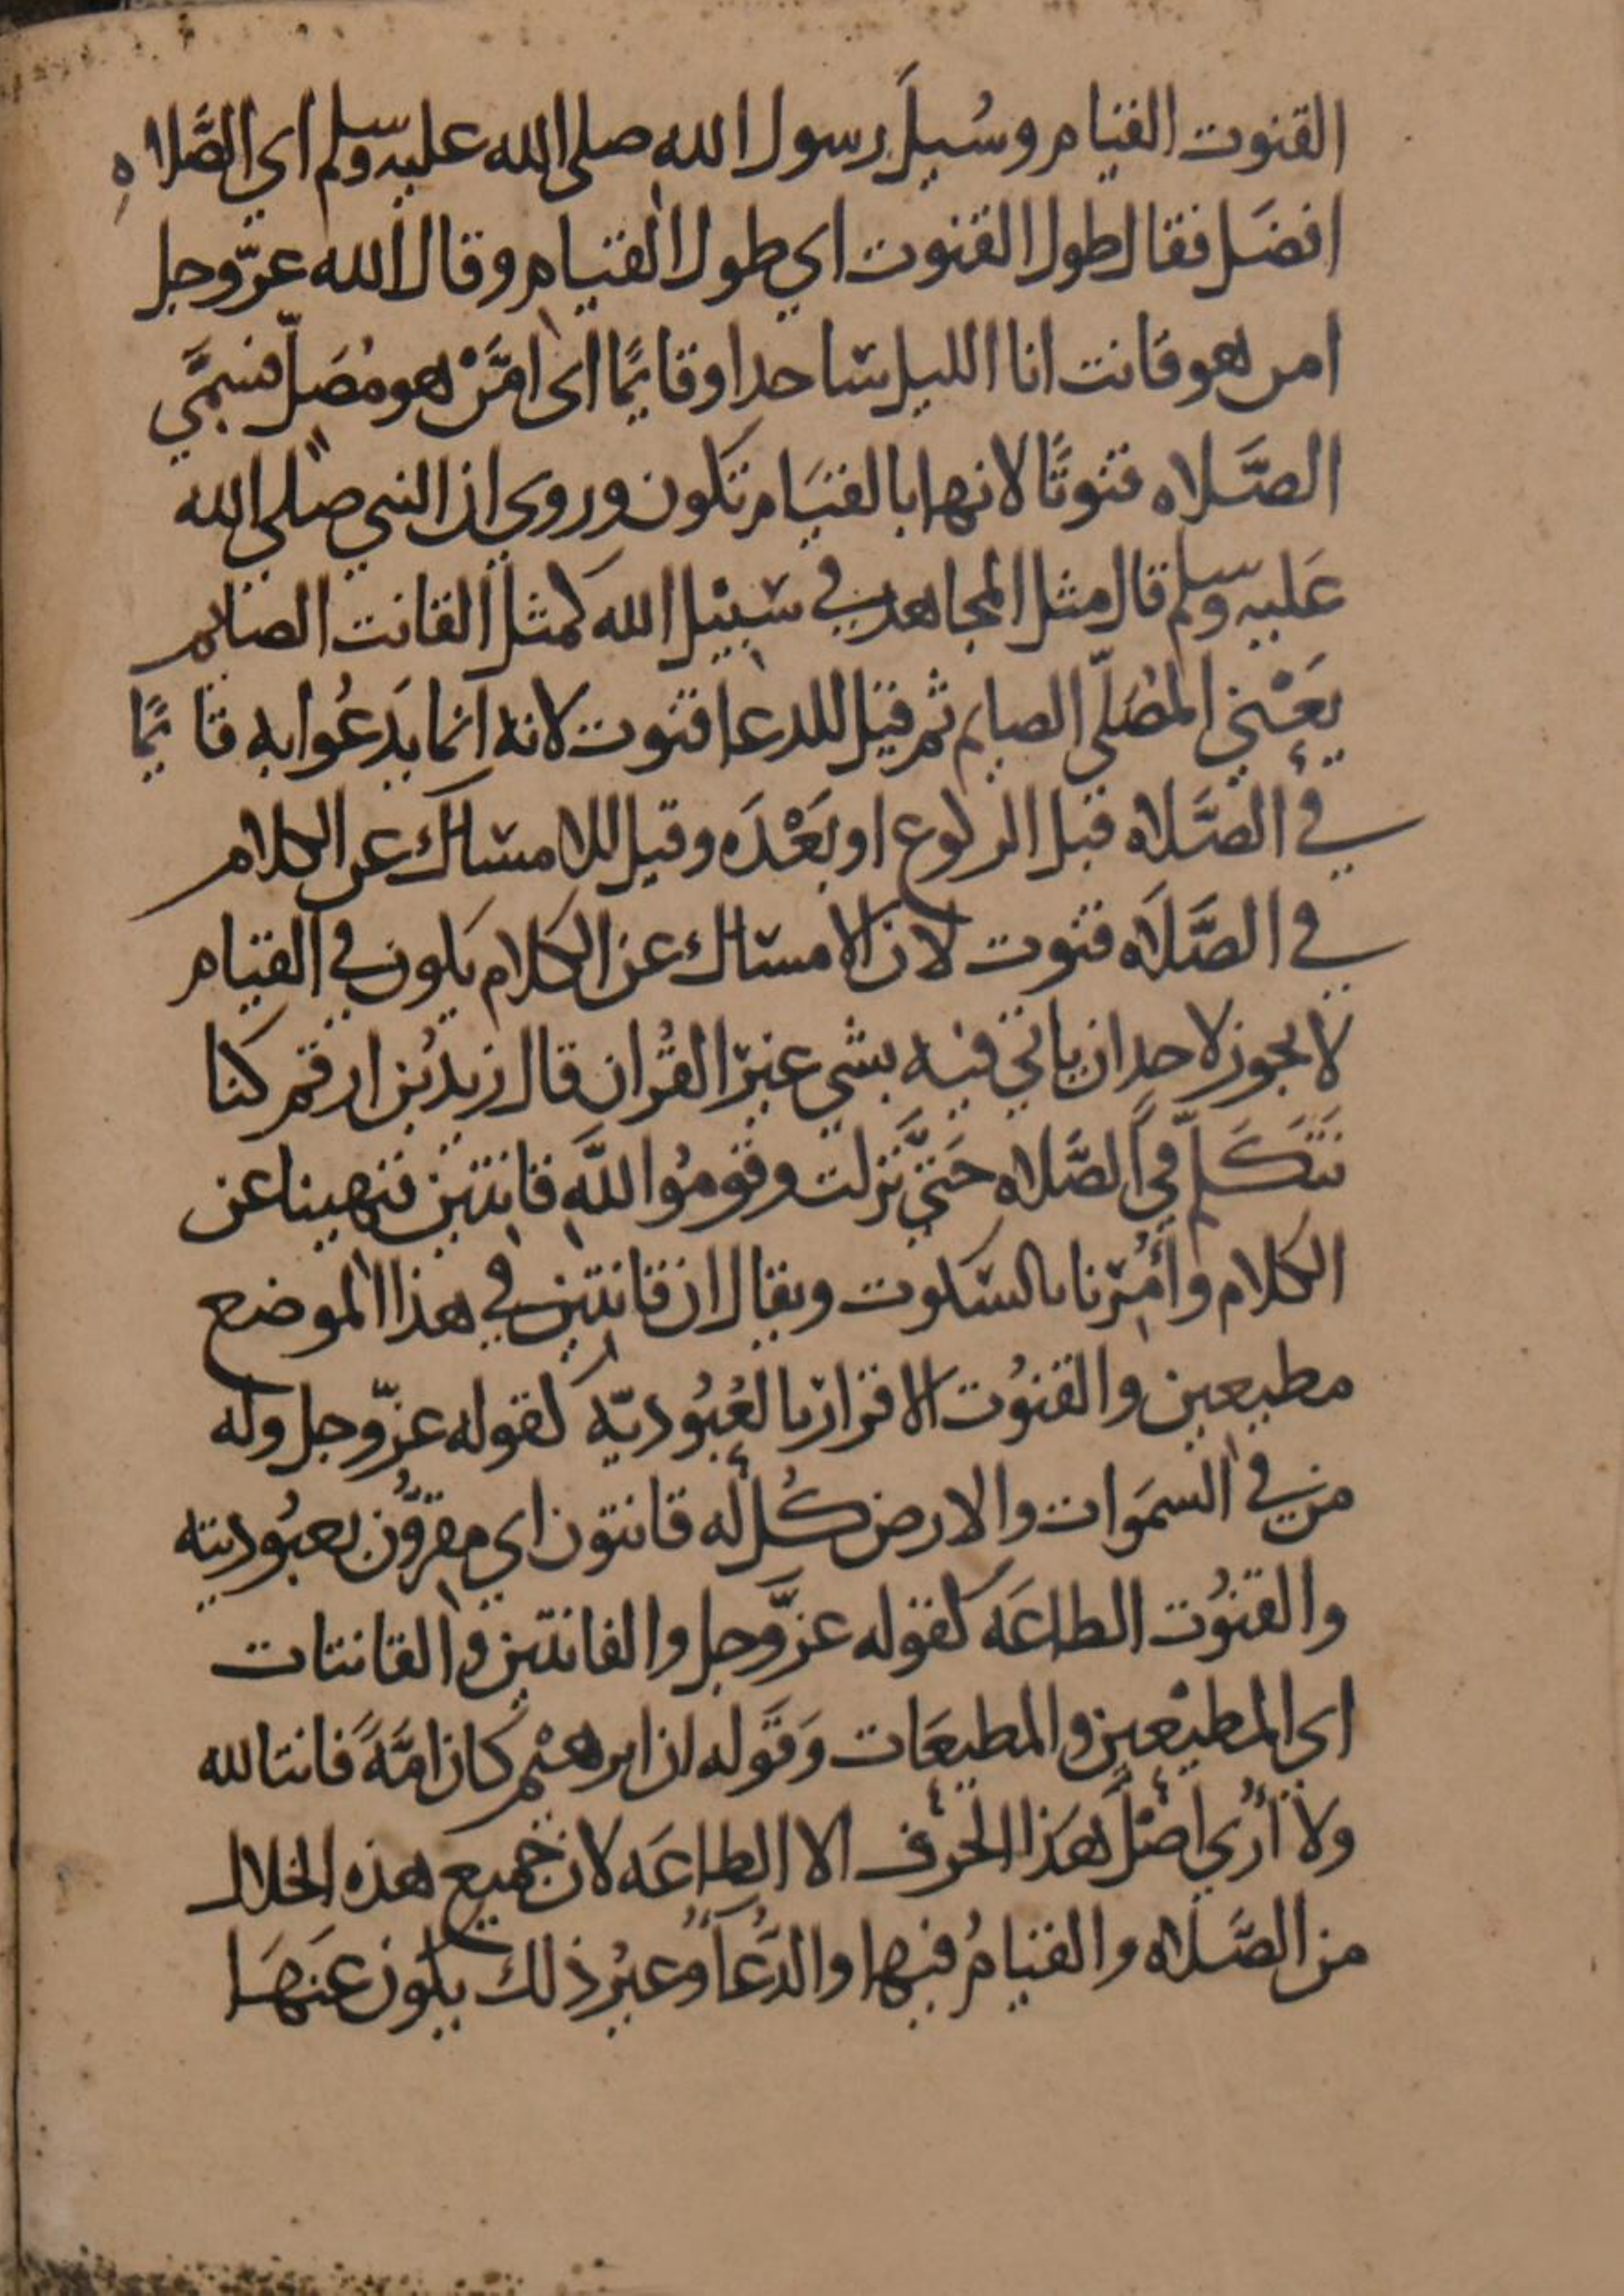 القنوت القيام وسُيلَ رسول الله صلى الله عليه وسلم اي الصَّلاهِ
افضَل فقال طول القنوت اي طول القيام وقال الله عزّوجل
امن هو قانت انا الليل ساجدا وقايمًا اى امَّنْ هو مُصَلّ فسمَّي
الصَّلاه قنوتًا لانها بالقيَام تكون وروي ان النبي صلى الله
عَليه وسلم قال مثل المجاهد في سَبيْل الله كمثل القانت الصايم
يَعْني المُصَلّي الصايم ثم قيْل للدعا قنوت لانه انما يَدعُوا به قايمًا
في الصَّلاه قبل الركوع او بَعْدَه وقيل للامساك عن الكلام
في الصَّلَاه قنوت لان الامساك عن الكلام يكون في القيام
لا يجوز لاحد ان ياتي فيه بشي غيْر القُران قال زيد بْن ارقم كنا
نَتَكَلّم في الصَّلاه حَتيَّ نَزلت وقومُوا للَّهِ قانتين فنهينا عن
الكلام وأُمِرْنا بالسّكوت ويقال ان قانتين في هذا الموضع
مطيعين والقنوُت الاقرار بالعُبُوديّه كقوله عزّوجل وله
من في السمَوات والارض كُل له قانتون اي مقرُّون بعبُوديته
والقنوُت الطاعَه كقوله عزَّوجل والقانتين والقانتات
اى المطيْعين والمطيعَات وَقَوله ان ابرهيْم كان امَّةً قانتا لله
ولا أرُي اصْلَ هَذا الحَرْف الا الطاعَه لان جميع هذه الخلال
من الصَّلَاه والقيامُ فيها والدُّعَآ وغيْر ذلك يكون عَنهَا